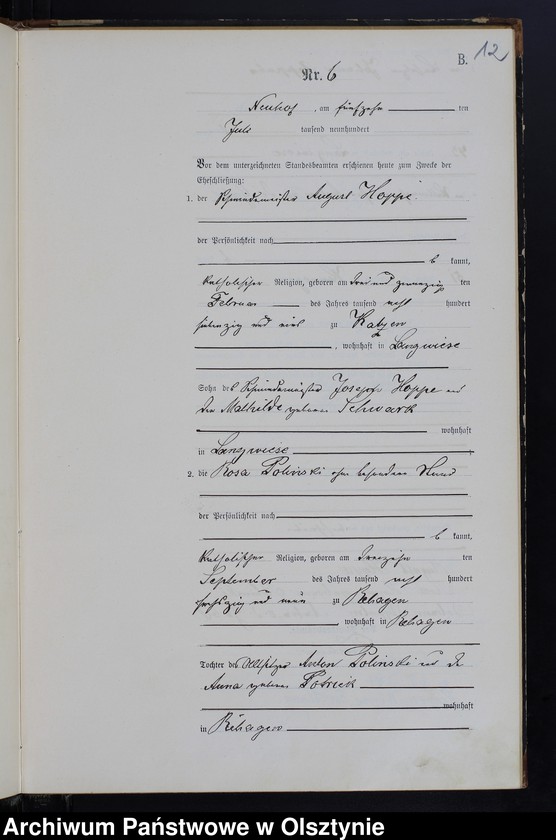 B. 12
Nr. 6
Neuhof, am fünfzehn ten
Juli tausend neunhundert
Vor dem unterzeichneten Standesbeamten erschienen heute zum Zwecke der
Eheschließung:
1. der Schmiedemeister August Hoppe
der Persönlichkeit nach
b kannt,
katholischer Religion, geboren am drei und zwanzig ten
Februar des Jahres tausend acht hundert
siebenzig und eins zu
, wohnhaft in Langwiese
Sohn des Schmiedemeister Joseph Hoppe und
der Mathilde geborene Schwark
wohnhaft
in Langwiese
2. die Rosa Polinski ohne besonderen Stand
der Persönlichkeit nach
b kannt,
katholischer Religion, geboren am dreizehn ten
September des Jahres tausend acht hundert
sechszig und neun zu Rehagen
, wohnhaft in Rehagen
Tochter des Altsitzer Anton Polinski und der
Anna geborene
wohnhaft
in Rehagen
Archiwum Państwowe w Olsztynie